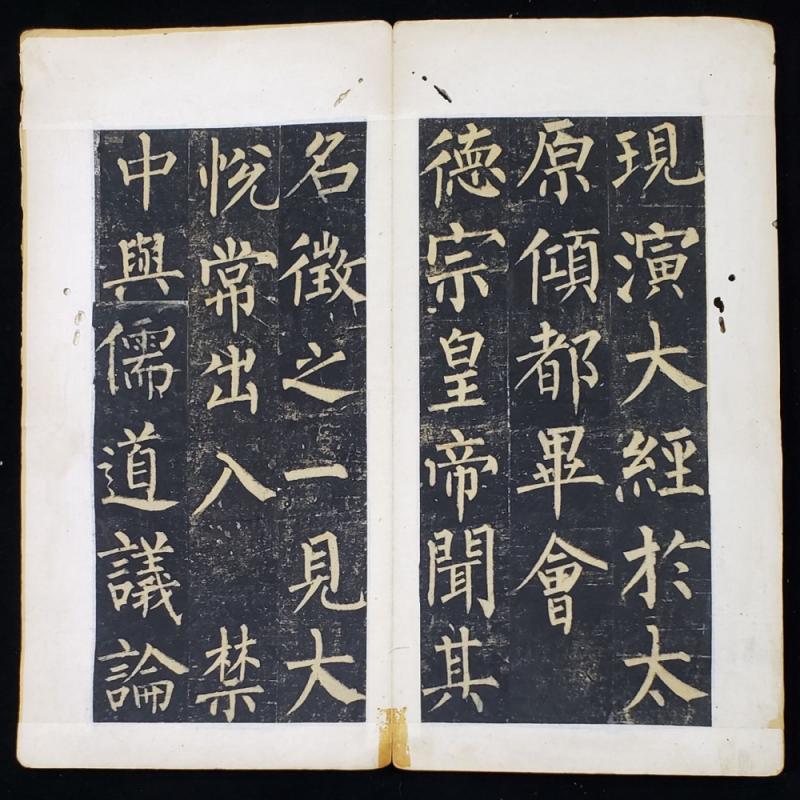 現演大經於太
原傾都畢會
德宗皇帝聞其
名徵之一見大
悅常出入禁
中與儒道議論